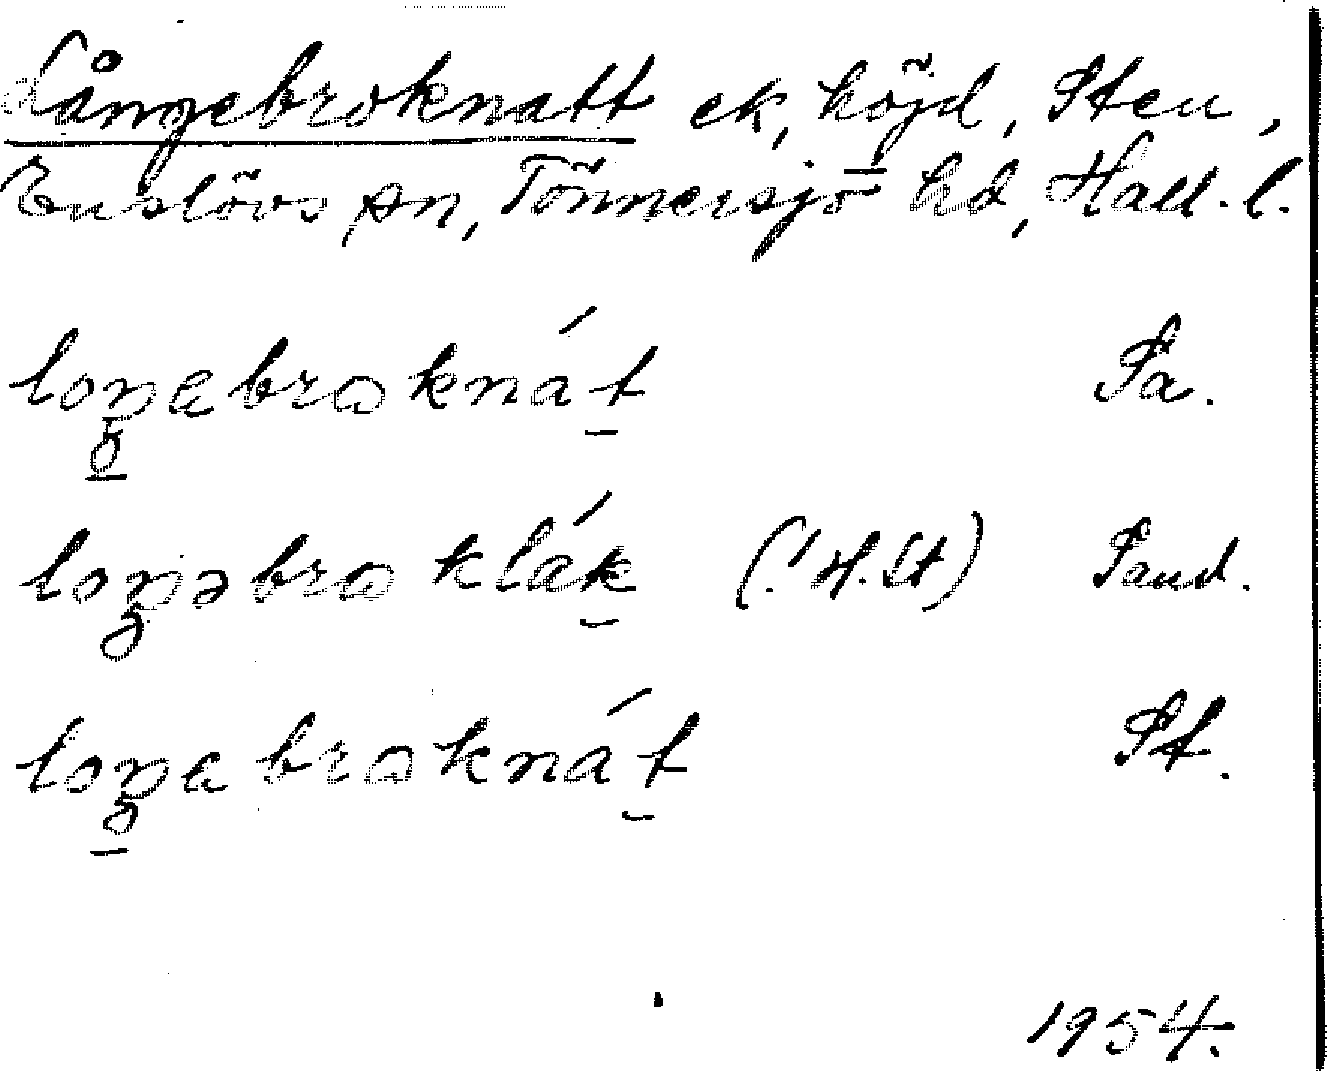 Långebroknatt ek, höjd, Sten,
Enslövs sn, Tönnersjö hd, Hall. l.
loŋebrωknát Pa.
loŋəbrωklák (! H. St) Pand.
loŋabrωknát St.
1954.